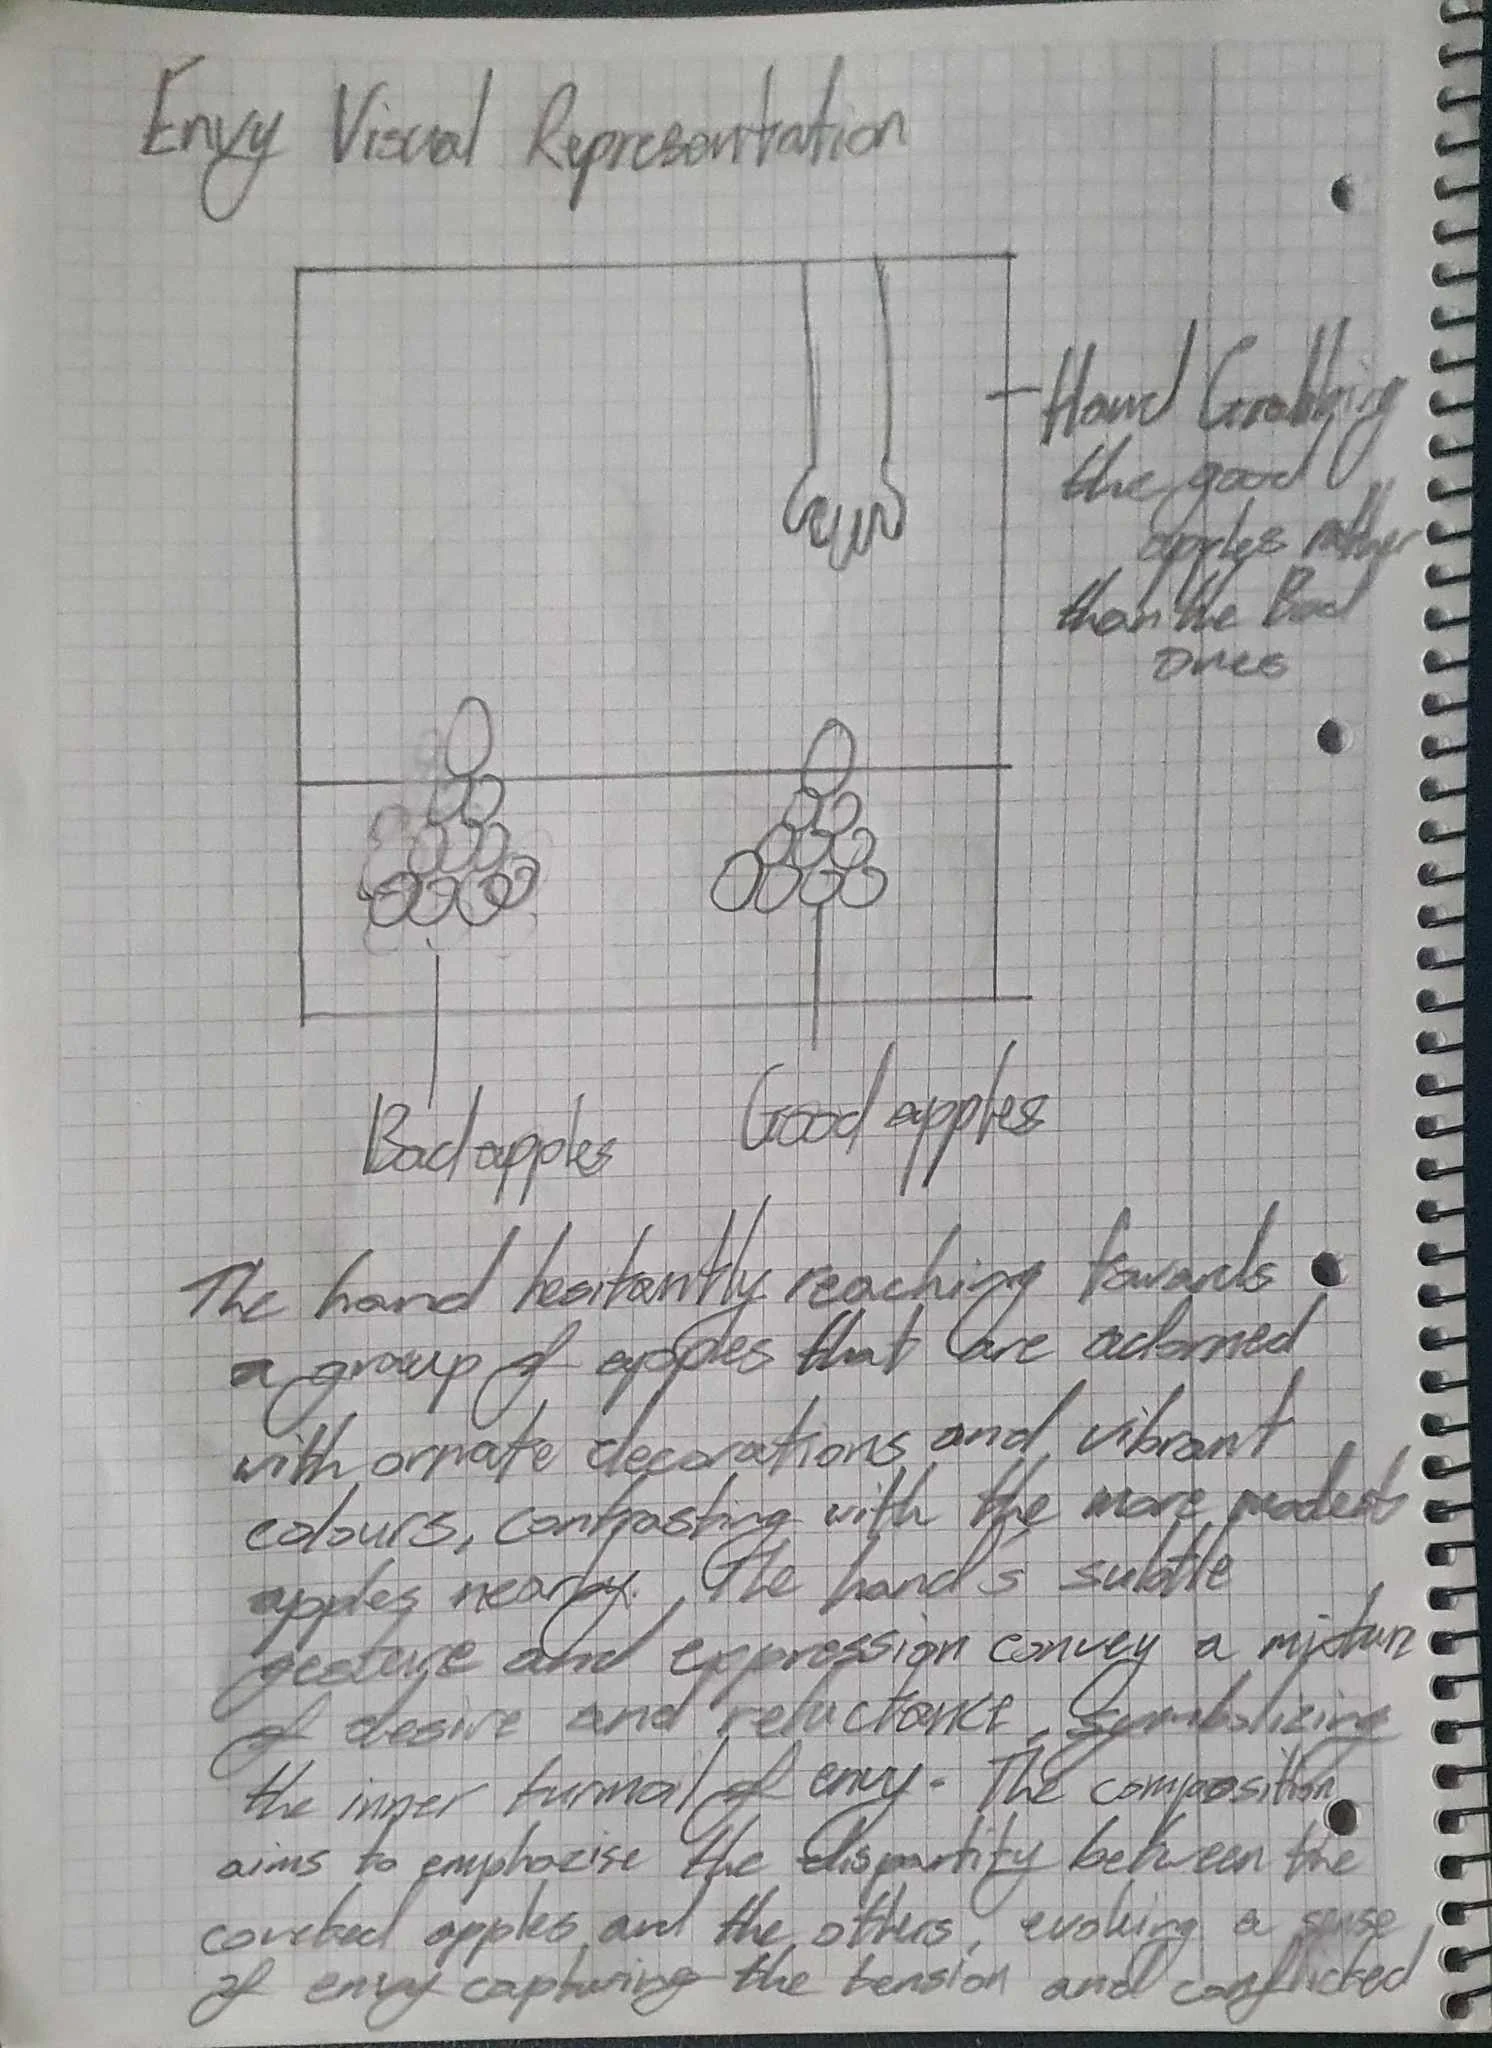 Envy Visual Representation
Hand Grabbing
the good
apples rather
than the Bad
ones
Bad apples
Good apples
The hand hesitantly reaching towards
a group of apples that are adorned
with ornate decorations and vibrant
colours, contrasting with the more modest
apples nearby. The hand's subtle
gesture and expression convey a mixture
of desire and reluctance, symbolizing
the inner turmoil of envy. The composition
aims to emphazise the disparity between the
coveted apples and the others, evoking a sense
of envy capturing the tension and conflicted